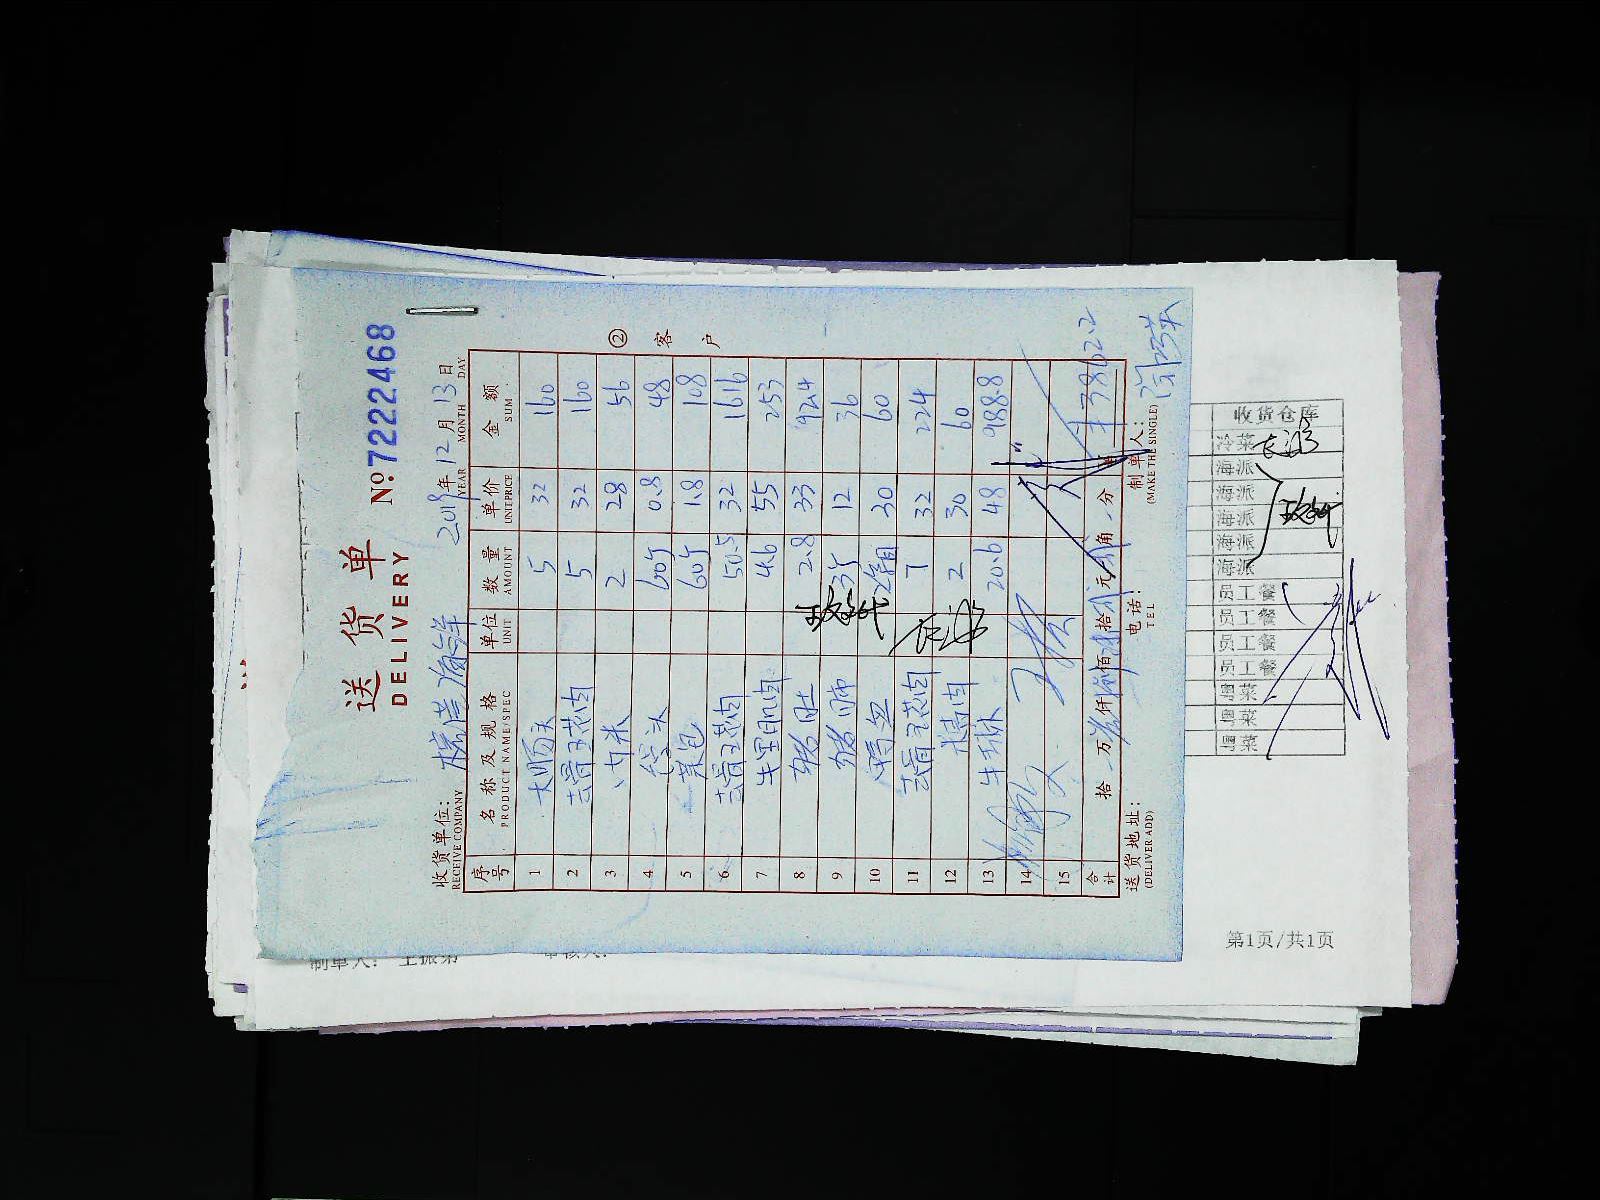 送货单
DELIVERY
№ 7222468
收货单位：
RECEIVE COMPANY
2019年 12月 13日
YEAR MONTH DAY
序号 名称及规格 单位 数量 单价 金额
PRODUCT NAME/SPEC UNIT AMOUNT UNIT PRICE SUM
1 大肠头 5 32 160
2 去骨五花肉 5 32 160
3 小米 2 28 56
4 馒头 60个 0.8 48
5 菜包 60个 1.8 108
6 去骨五花肉 50.5 32 1616
7 牛里肌肉 4.6 55 253
8 猪肚 2.8 33 92.4
9 猪肺 3个 12 36
10 30 60
11 去骨五花肉 7 32 224
12 精肉 2 30 60
13 牛 20.6 48 988.8
14
15
合计 拾 万 仟 佰 拾 元 角 分 ¥3862.2
② 客户
送货地址：
(DELIVER ADD)
电话：
TEL
制单人：
(MAKE THE SINGLE)
收货仓库
冷菜
海派
海派
海派
海派
海派
员工餐
员工餐
员工餐
员工餐
粤菜
粤菜
粤菜
第1页/共1页
制单人：